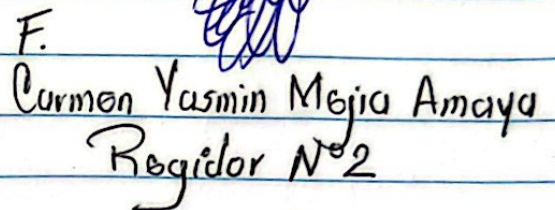 F.
Carmen Yasmin Mejia Amaya
Regidor N°2